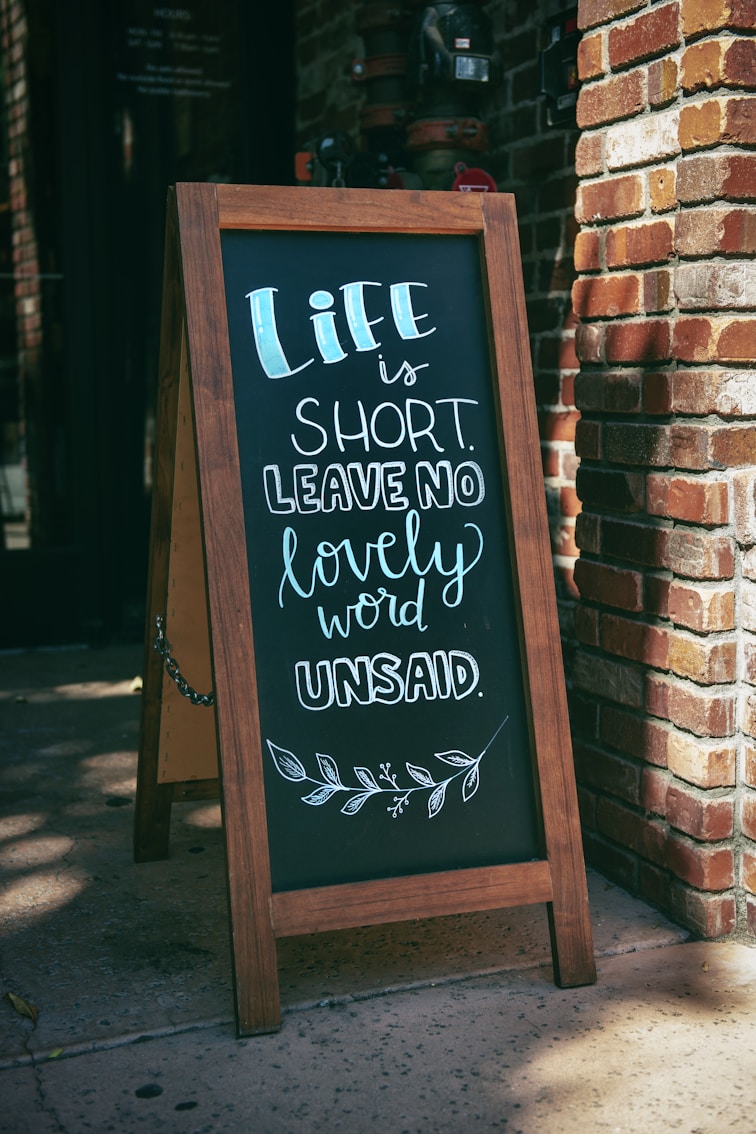 HOURS:
LiFE
is
SHORT.
LEAVE NO
lovely
word
UNSAID.